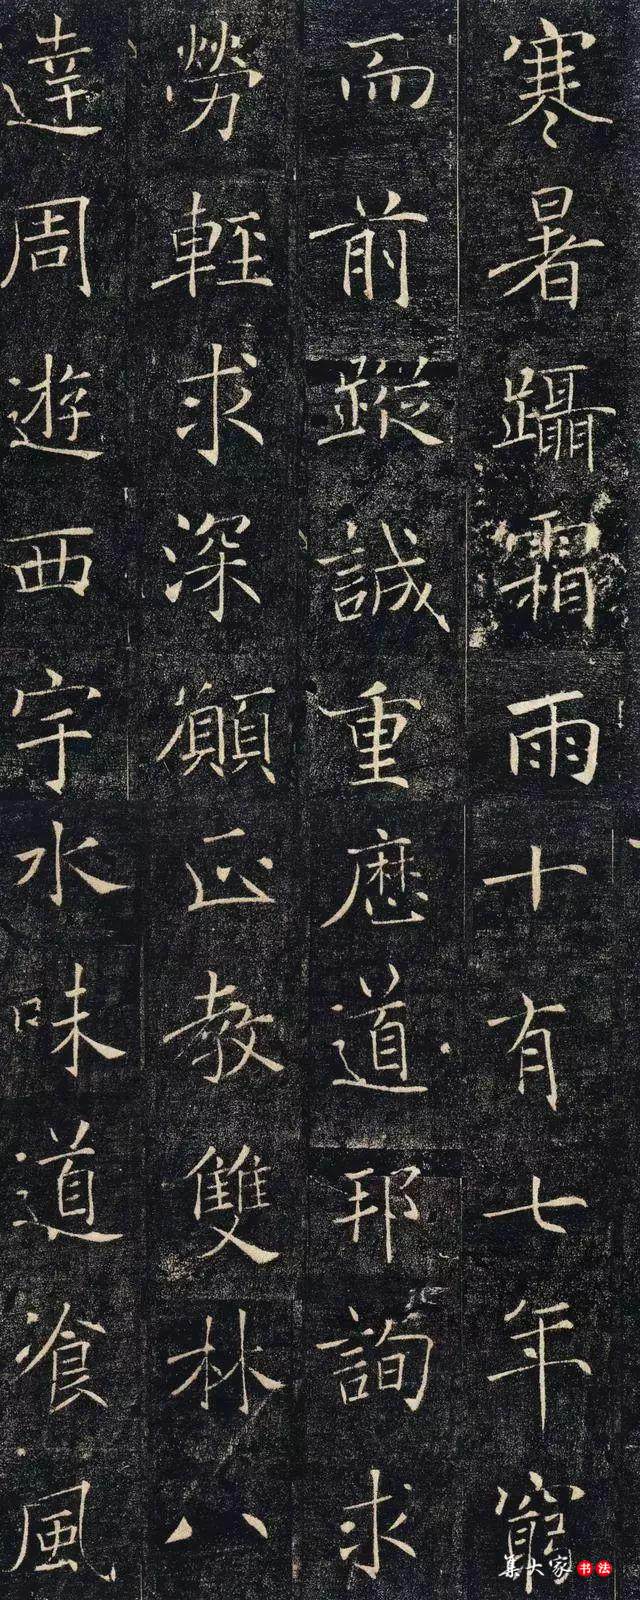 寒暑躡霜雨十有七年窮
而前蹤誠重歷道邦詢求
勞輕求深願正教雙林八
達周遊西宇水味道飡風
集大家书法